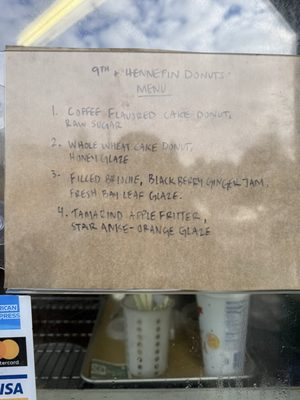 9TH + "HENNEPIN DONUTS"
MENU
1. COFFEE FLAVORED CAKE DONUT,
RAW SUGAR
2. WHOLE WHEAT CAKE DONUT,
HONEY GLAZE
3. FILLED BRIOCHE, BLACKBERRY GINGER JAM,
FRESH BAY LEAF GLAZE.
4. TAMARIND APPLE FRITTER,
STAR ANISE-ORANGE GLAZE
ICAN
PRESS
mastercard
VISA